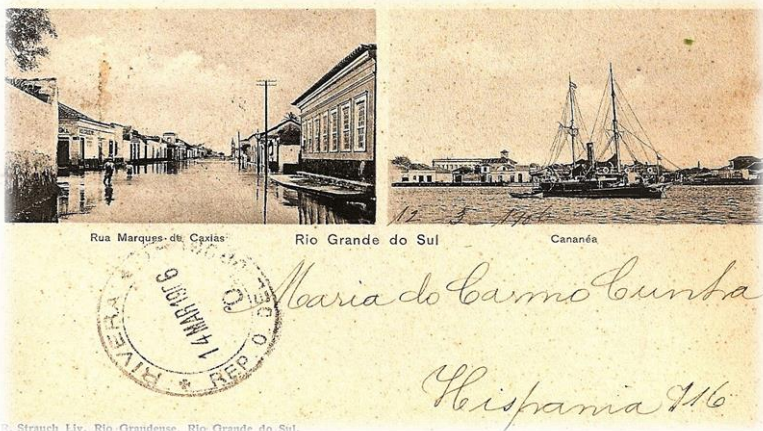 12 3 190
Rua Marques de Caxias
Rio Grande do Sul
Cananéa
RIVERA
14 MAR 1906
REP. O. DEL
Maria do Carmo Cunha
Hispania 716
R. Strauch Liv. Rio-Grandense, Rio Grande do Sul.